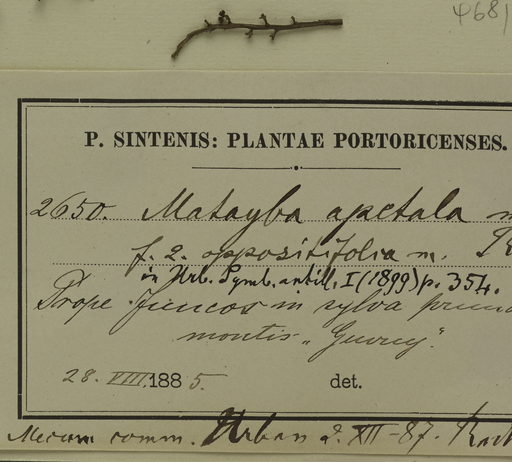 4681
P. SINTENIS: PLANTAE PORTORICENSES.
2650. Matayba apetala m
f. 2. oppositifolia m. R
in Urb. Symb. antill. I (1899) p. 354.
Prope Juncos in sylva prim
montis „Gurruy".
28. VIII. 1885. det.
Mecum comm. Urban d. XII-87. Radl